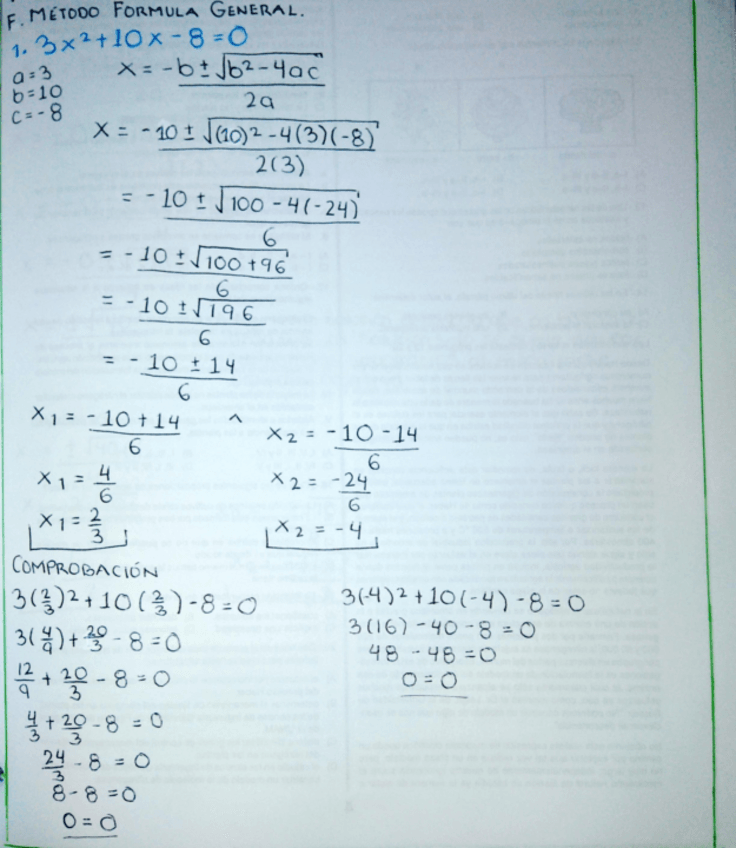 F. MÉTODO FORMULA GENERAL.
1. 3x²+10x-8=0
a=3
b=10
c=-8
x = -b±√b²-4ac
2a
x = -10 ± √(10)²-4(3)(-8)
2(3)
= -10 ± √100-4(-24)
6
= -10 ±√100+96
6
= -10 ±√196
6
= -10 ± 14
6
x1 = -10+14
6
x1 = 4/6
x1 = 2/3
^
x2 = -10-14
6
x2 = -24
6
x2 = -4
COMPROBACIÓN
3(2/3)²+10(2/3)-8=0
3(4/9)+20/3-8=0
12/9+20/3-8=0
4/3+20/3-8=0
24/3-8=0
8-8=0
0=0
3(-4)²+10(-4)-8=0
3(16)-40-8=0
48-48=0
0=0